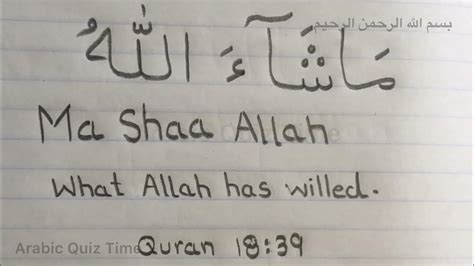 بسم الله الرحمن الرحيم
مَا شَآءَ اللّٰهُ
Ma Shaa Allah
What Allah has willed.
Arabic Quiz Time
Quran 18:39